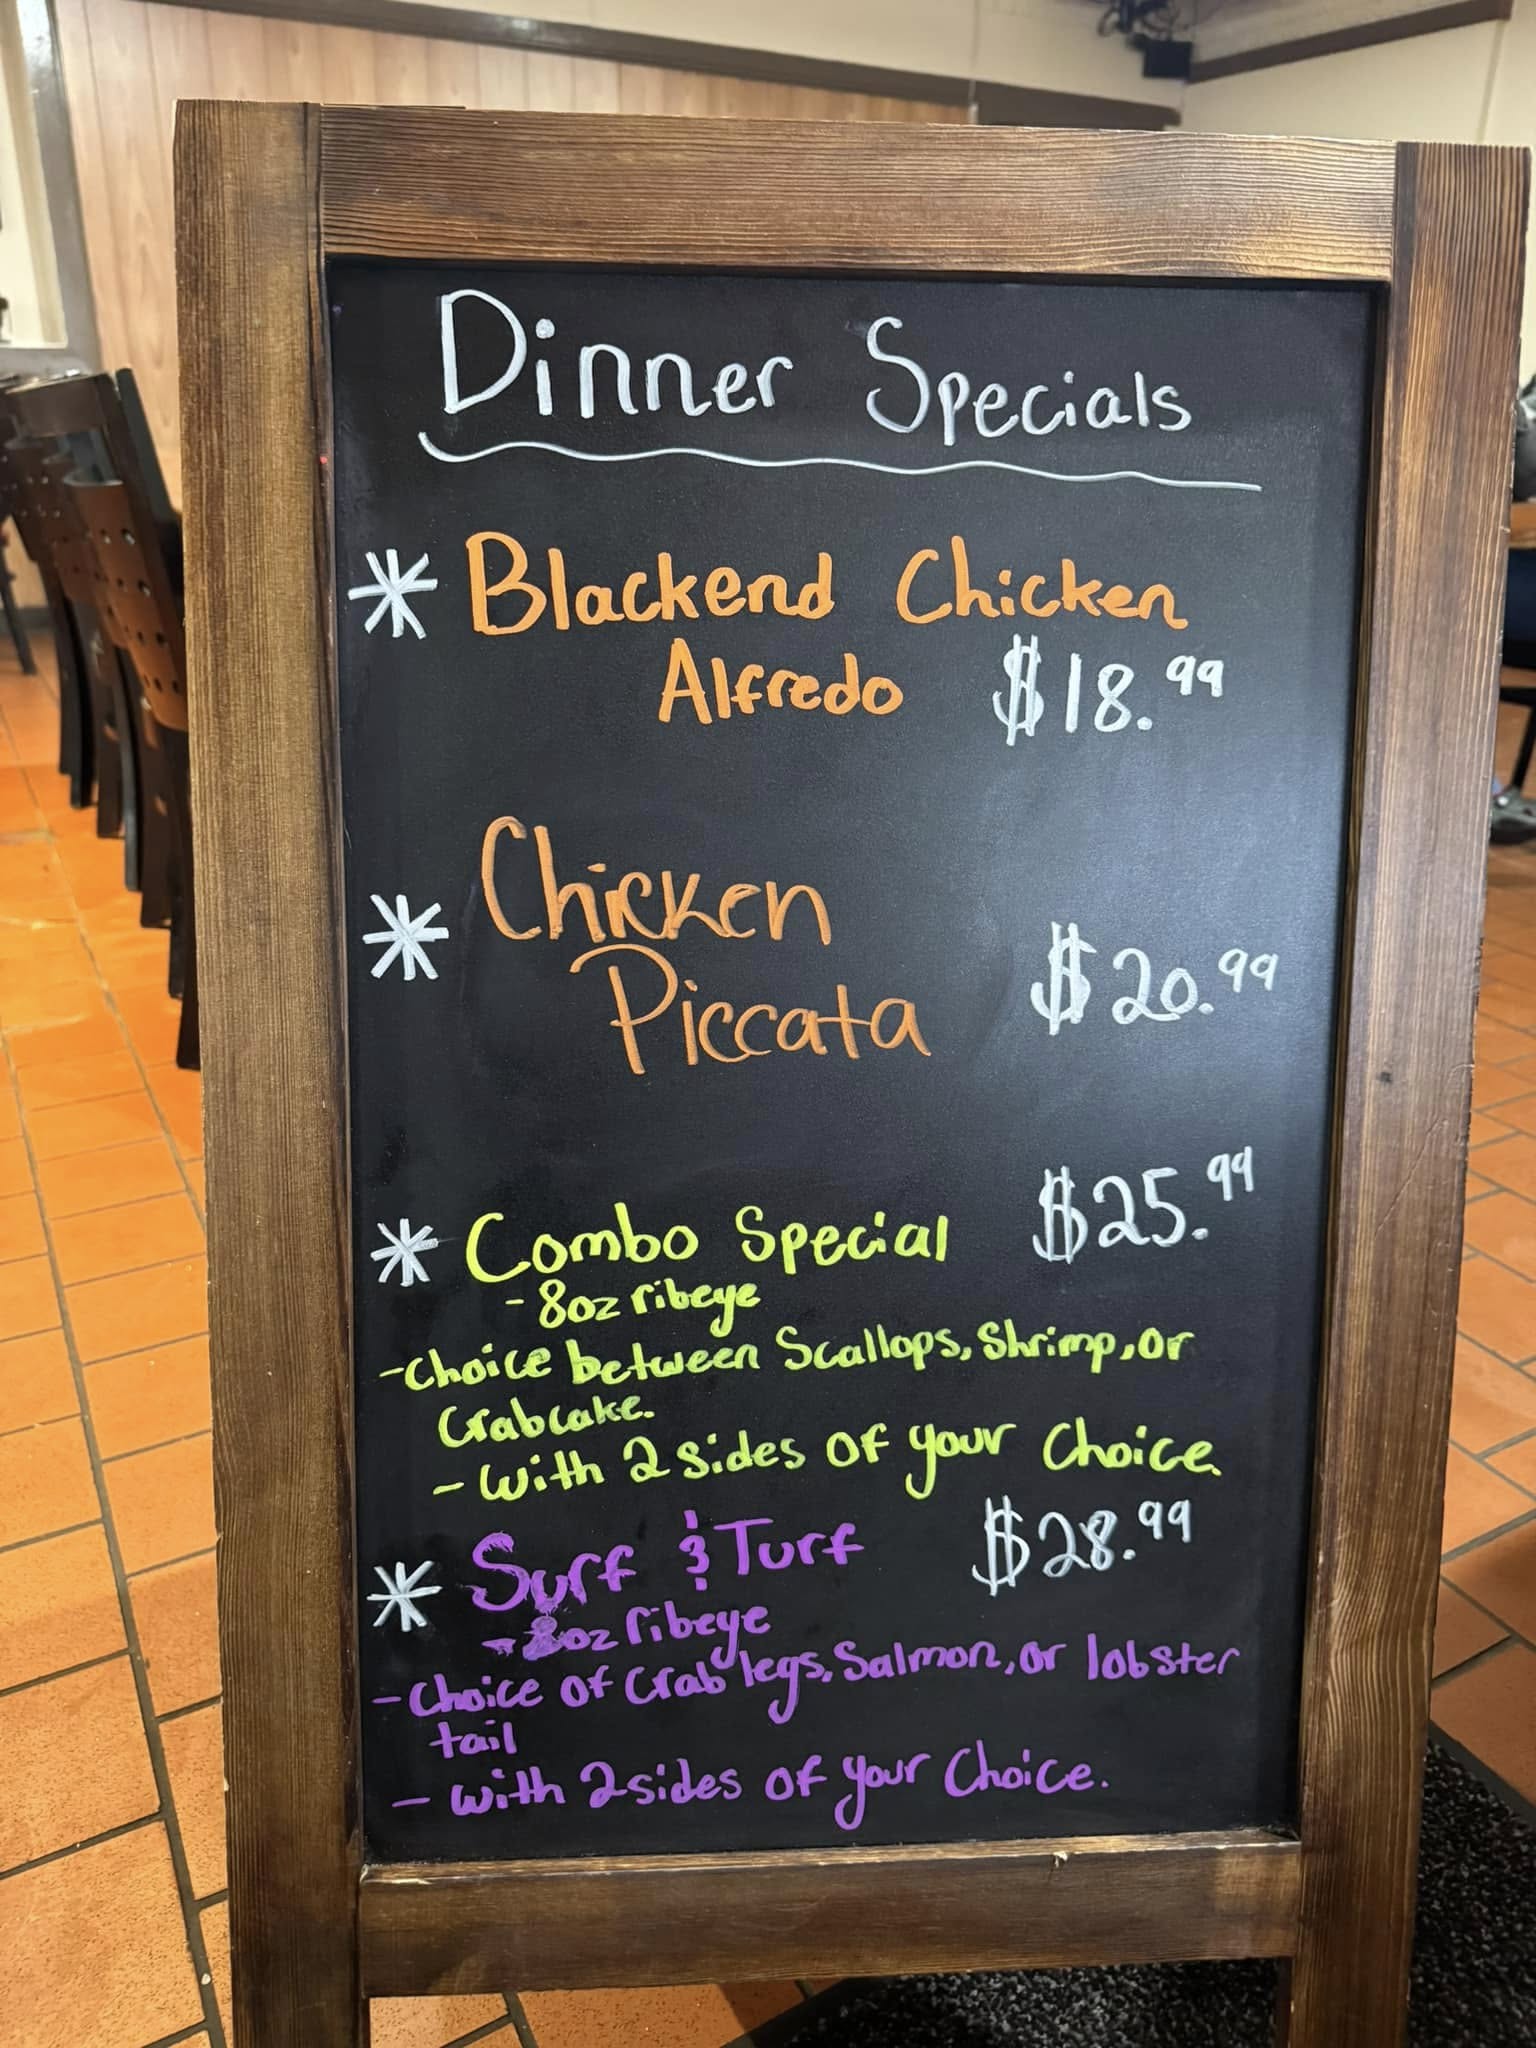 Dinner Specials
* Blackend Chicken
Alfredo $18.99
* Chicken
Piccata $20.99
* Combo Special $25.99
- 8oz ribeye
- Choice between Scallops, Shrimp, or
Crabcake.
- with 2 sides of your Choice.
* Surf & Turf $28.99
- 8oz ribeye
- Choice of Crab legs, Salmon, or lobster
tail
- with 2 sides of your Choice.